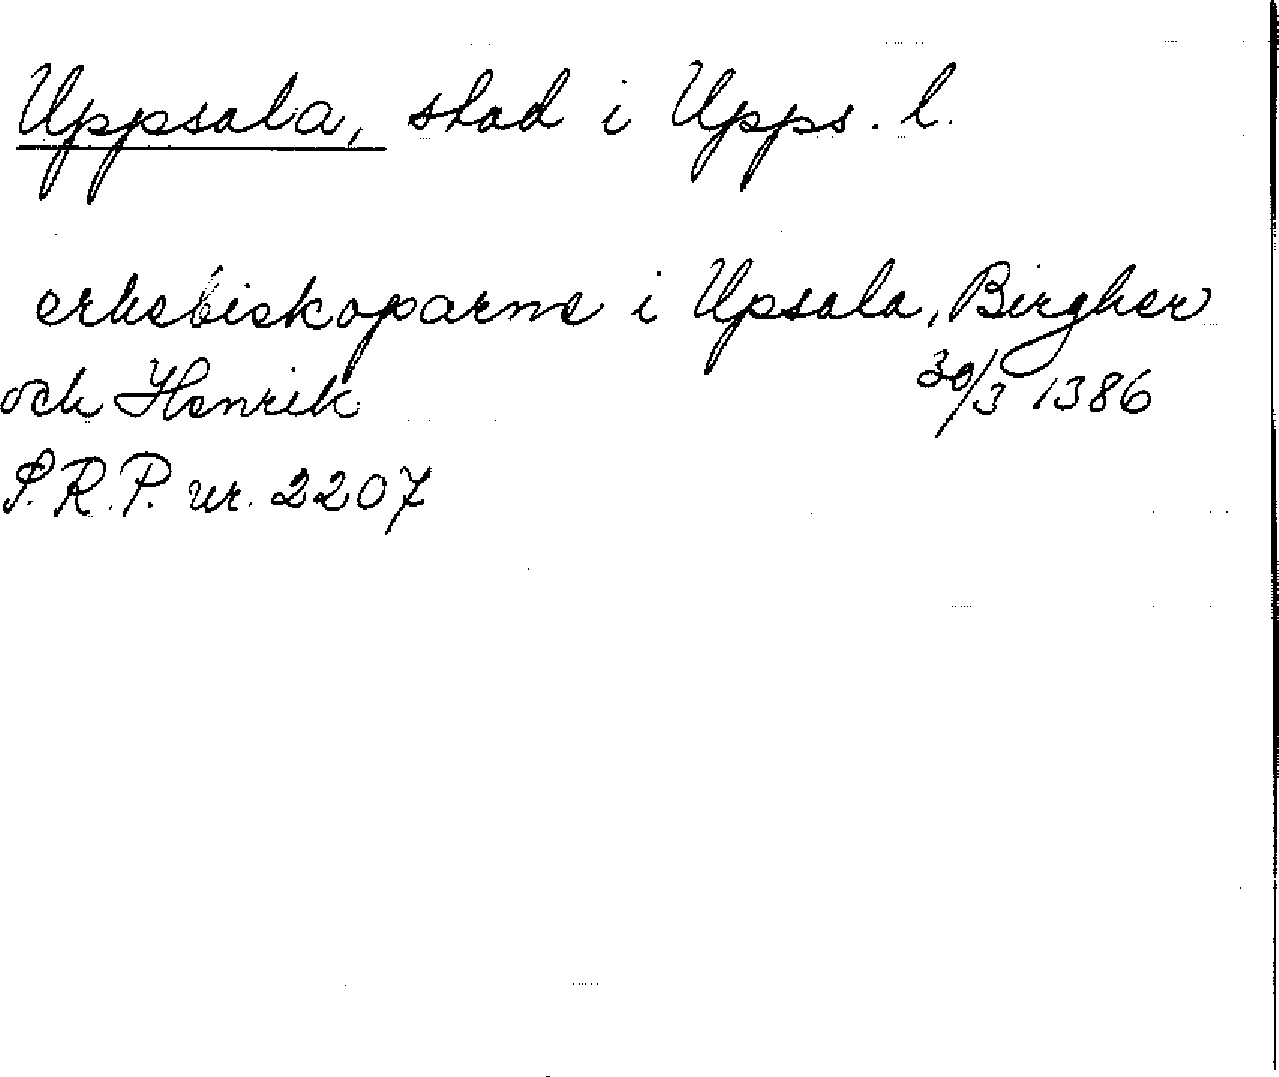 Uppsala, stad i Upps. l.
erkebiskoparne i Upsala, Birgher
och Henrik 30/3 1386
S.R.P. nr. 2207